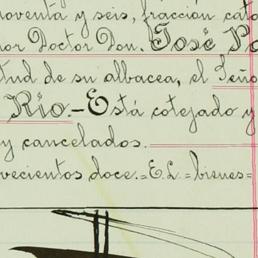 noventa y seis, fracción cato
nor Doctor Don. José Po
tud de su albacea, el Seño
Río.-Está cotejado y
y cancelados.
vecientos doce.=E.L.=bienes=